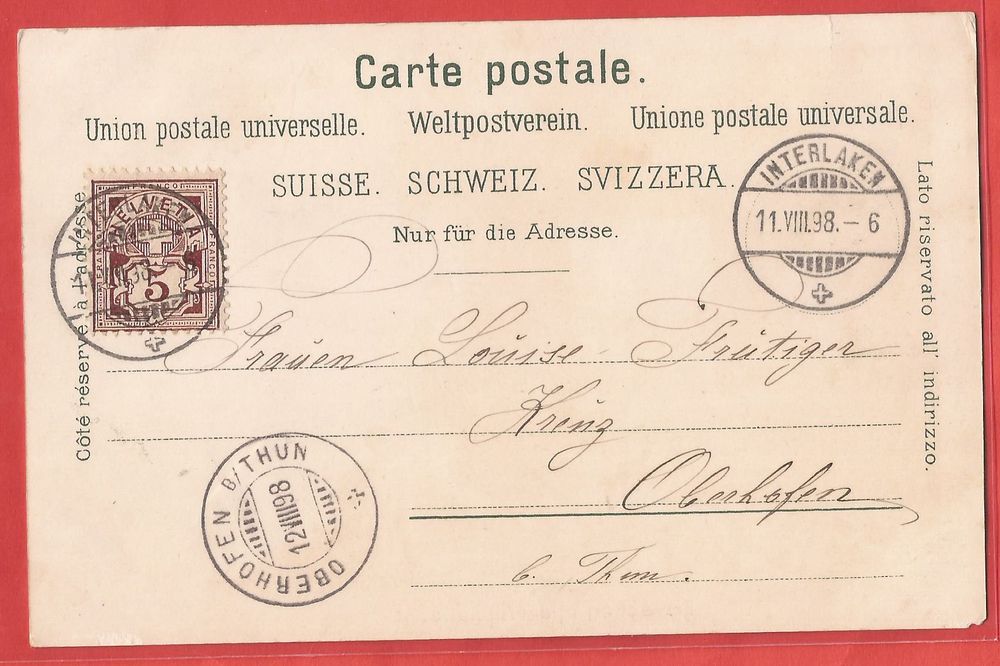 Carte postale.
Union postale universelle. Weltpostverein. Unione postale universale.
SUISSE. SCHWEIZ. SVIZZERA.
Nur für die Adresse.
Côté réservé à l'adresse
Lato riservato all' indirizzo.
FRANCO
HELVETIA
FRANCO
FRANCO
5
INTERLAKEN
11.VIII.98.-6
Frauen Louise Frutiger
Kreuz
Oberhofen
b. Thun.
OBERHOFEN B/THUN
12 VIII 98